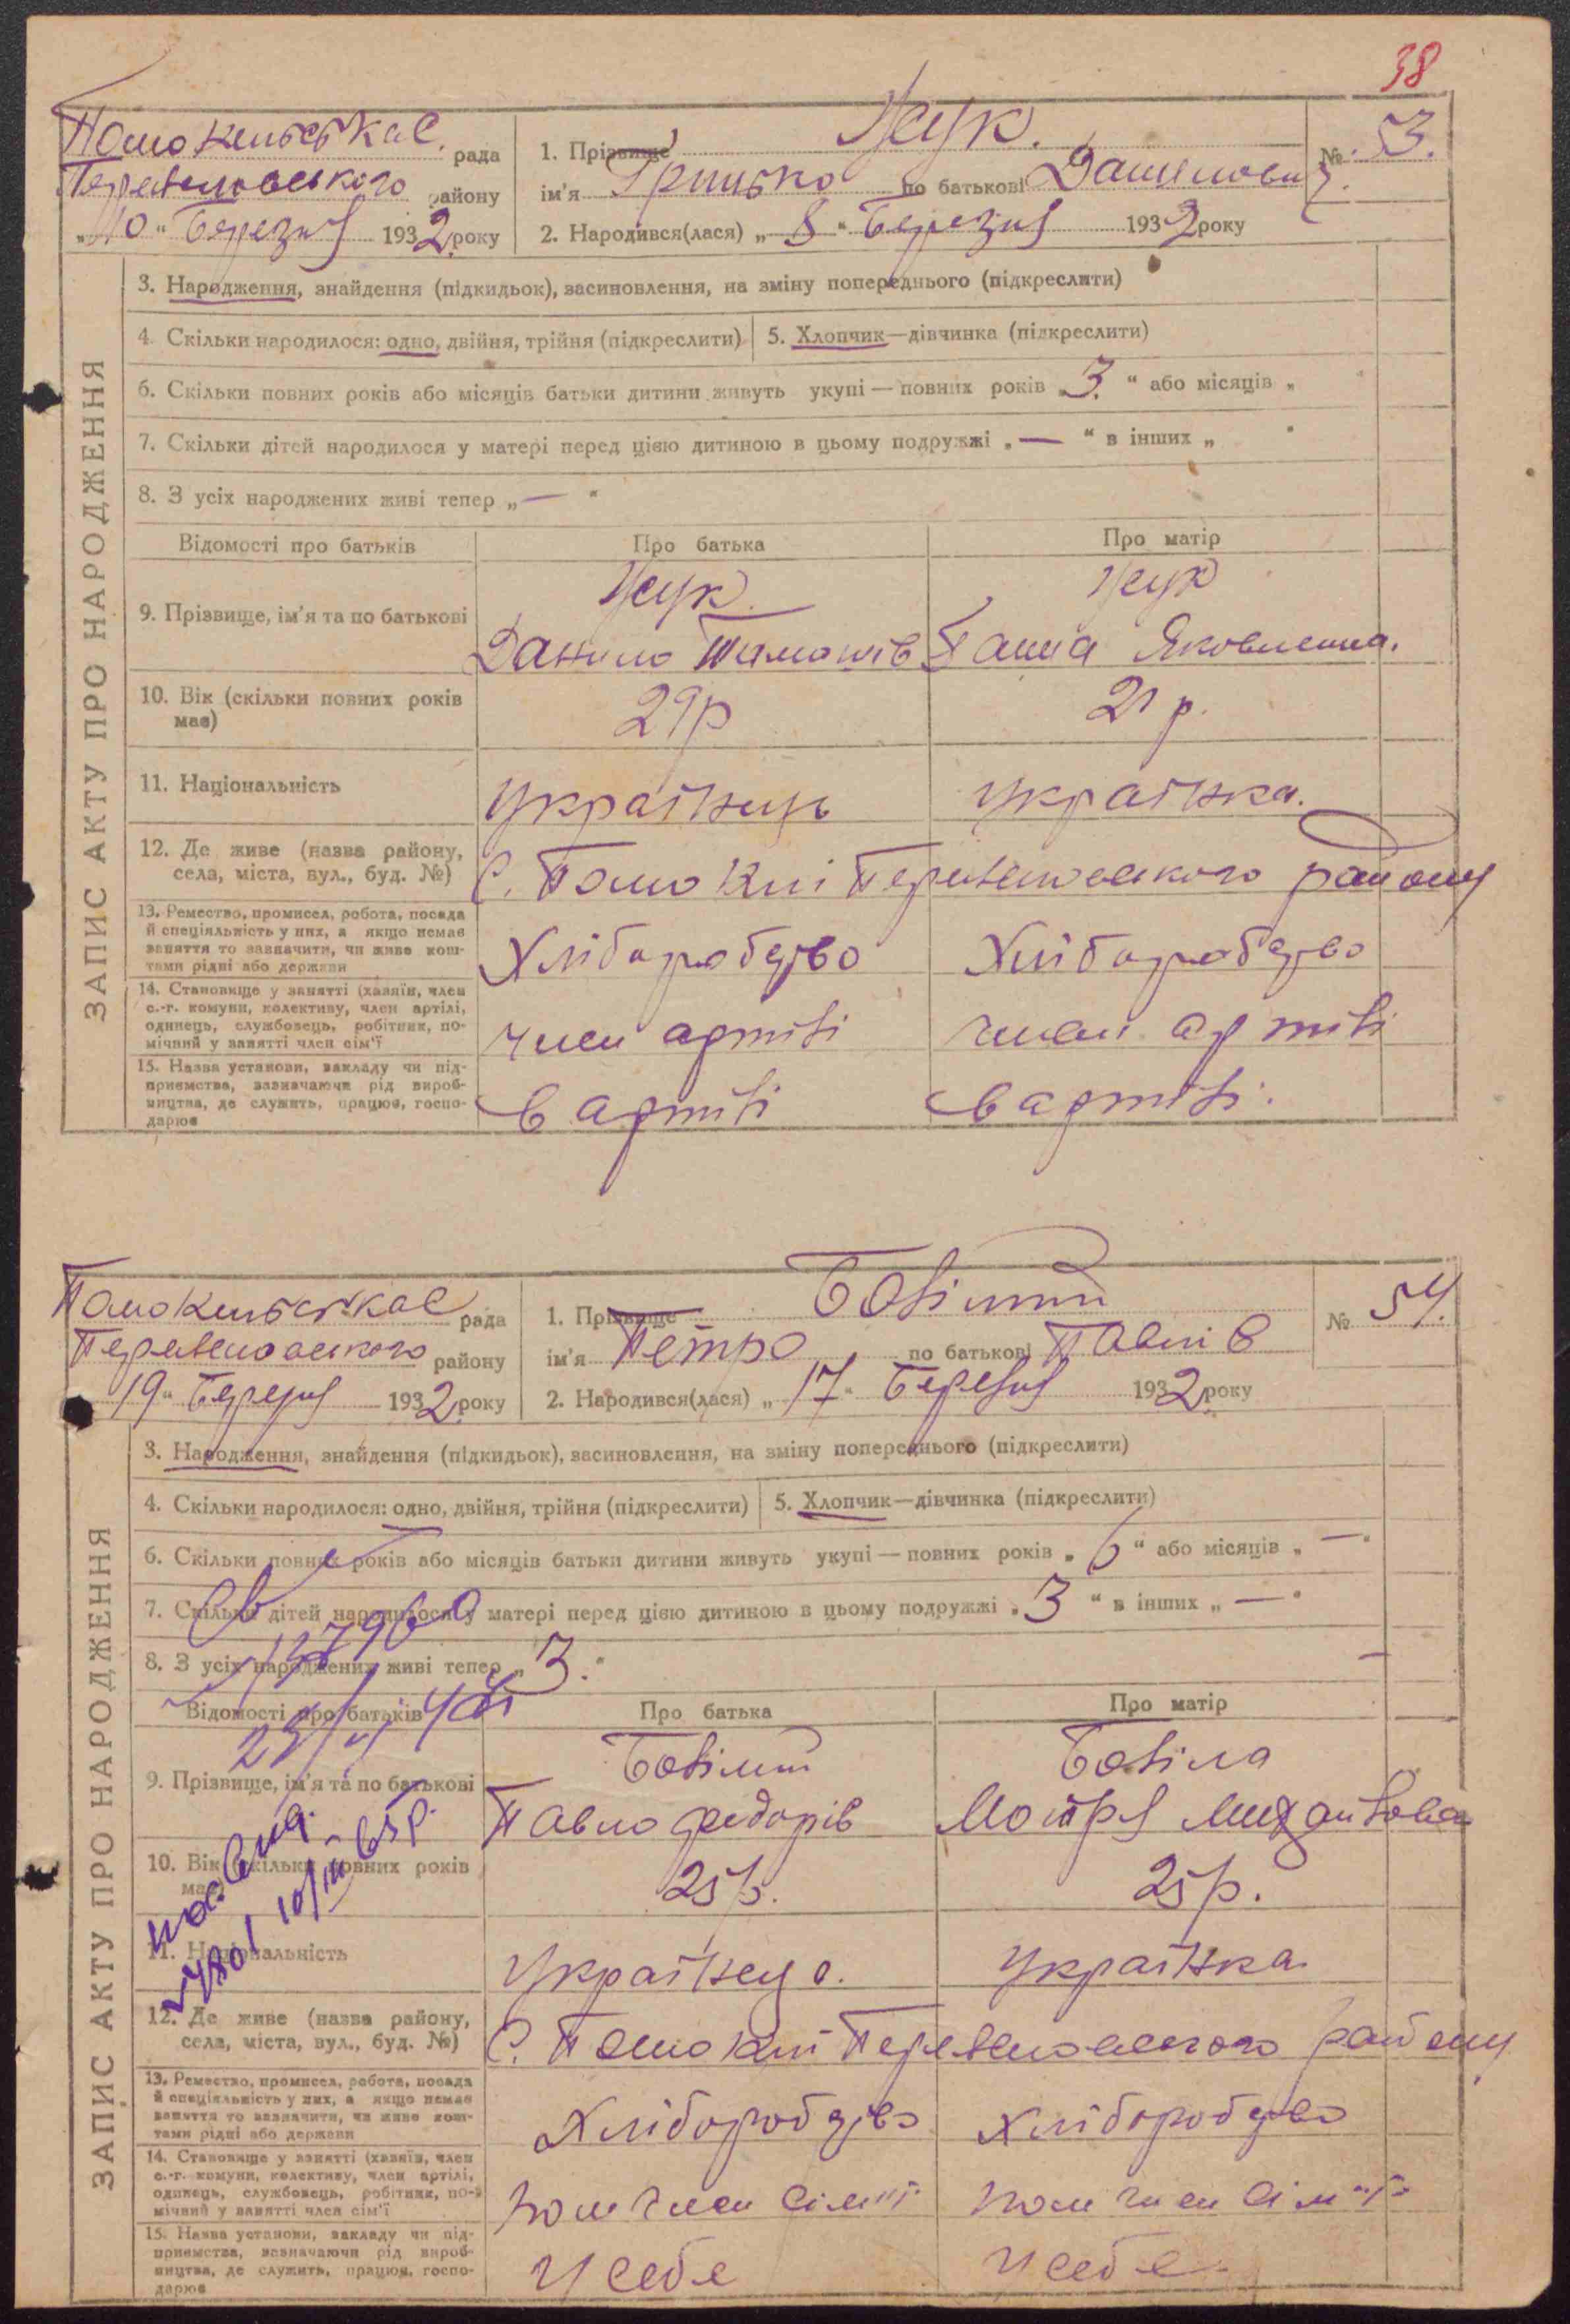 38
Помокельська С. рада
району
"10" Березня 1932 року
1. Прізвище Жук.
ім'я Грицько по батькові Данилович
№ 53.
2. Народився(лася) „8" Березня 1932 року
ЗАПИС АКТУ ПРО НАРОДЖЕННЯ
3. Народження, знайдення (підкидьок), засиновлення, на зміну попереднього (підкреслити)
4. Скільки народилося: одно, двійня, трійня (підкреслити)
5. Хлопчик—дівчинка (підкреслити)
6. Скільки повних років або місяців батьки дитини живуть укупі — повних років „3." або місяців „ "
7. Скільки дітей народилося у матері перед цією дитиною в цьому подружжі „—" в інших „ "
8. З усіх народжених живі тепер „—"
Відомості про батьків
Про батька
Про матір
9. Прізвище, ім'я та по батькові
Жук
Данило
Жук
Яковлевна.
10. Вік (скільки повних років
має)
29р
21 р.
11. Національність
Українець
Українка.
12. Де живе (назва району,
села, міста, вул., буд. №)
С. району
13. Ремество, промисел, робота, посада
й спеціяльність у них, а якщо немає
заняття то зазначити, чи живе кош-
тами рідні або держави
Хліборобство
Хліборобство
14. Становище у занятті (хазяїн, член
с.-г. комуни, колективу, член артілі,
одинець, службовець, робітник, по-
мічний у занятті член сім'ї
член артілі
член артілі
15. Назва установи, закладу чи під-
приємства, зазначаючи рід вироб-
ництва, де служить, працює, госпо-
дарює
в артілі
в артілі.
Помокельська С рада
району
19" Березня 1932 року
1. Прізвище Бобілий
ім'я Петро по батькові Павлів
№ 54.
2. Народився(лася) „17" Березня 1932 року
ЗАПИС АКТУ ПРО НАРОДЖЕННЯ
3. Народження, знайдення (підкидьок), засиновлення, на зміну попереднього (підкреслити)
4. Скільки народилося: одно, двійня, трійня (підкреслити)
5. Хлопчик—дівчинка (підкреслити)
6. Скільки повних років або місяців батьки дитини живуть укупі — повних років „6" або місяців „—"
7. Скільки дітей народилося у матері перед цією дитиною в цьому подружжі „3" в інших „—"
8. З усіх народжених живі тепер „3."
Відомості про батьків
Про батька
Про матір
9. Прізвище, ім'я та по батькові
Бобілий
Павло Федорів
Бобіла
Мотря
10. Вік (скільки повних років
має)
25р.
25р.
11. Національність
Українець.
Українка
12. Де живе (назва району,
села, міста, вул., буд. №)
С. району
13. Ремество, промисел, робота, посада
й спеціяльність у них, а якщо немає
заняття то зазначити, чи живе кош-
тами рідні або держави
Хліборобство
Хліборобство
14. Становище у занятті (хазяїн, член
с.-г. комуни, колективу, член артілі,
одинець, службовець, робітник, по-
мічний у занятті член сім'ї
пом член сім"ї
пом член сім"ї
15. Назва установи, закладу чи під-
приємства, зазначаючи рід вироб-
ництва, де служить, працює, госпо-
дарює
У себе
У себе.